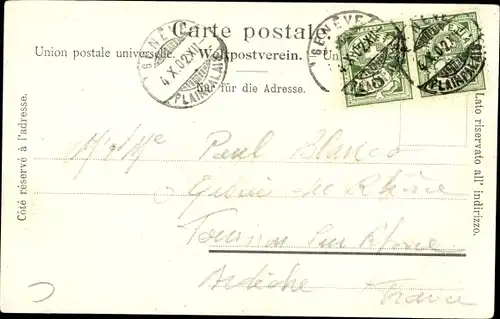 Carte postale
Union postale universelle. Weltpostverein. Un
Nur für die Adresse.
Côté réservé à l'adresse.
Lato riservato all' indirizzo.
GENÈVE
4.X.02.XII
PLAINPALAIS
GENÈVE
4.X.02.XII
Mr & Me Paul Blanc
du Rhône
Tournon sur Rhône
Ardèche France